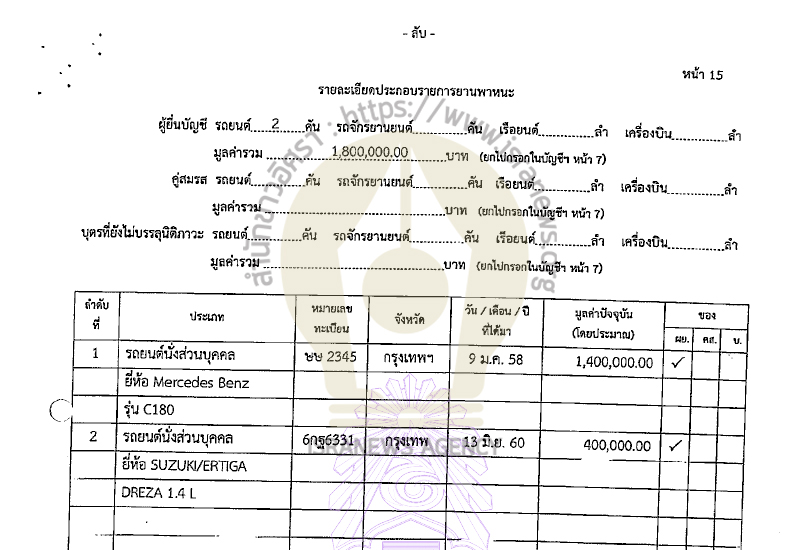 - ลับ -
หน้า 15
รายละเอียดประกอบรายการยานพาหนะ
ผู้ยื่นบัญชี รถยนต์ 2 คัน รถจักรยานยนต์ คัน เรือยนต์ ลำ เครื่องบิน ลำ
มูลค่ารวม 1,800,000.00 บาท (ยกไปกรอกในบัญชีฯ หน้า 7)
คู่สมรส รถยนต์ คัน รถจักรยานยนต์ คัน เรือยนต์ ลำ เครื่องบิน ลำ
มูลค่ารวม บาท (ยกไปกรอกในบัญชีฯ หน้า 7)
บุตรที่ยังไม่บรรลุนิติภาวะ รถยนต์ คัน รถจักรยานยนต์ คัน เรือยนต์ ลำ เครื่องบิน ลำ
มูลค่ารวม บาท (ยกไปกรอกในบัญชีฯ หน้า 7)
ลำดับที่ ประเภท หมายเลขทะเบียน จังหวัด วัน / เดือน / ปี ที่ได้มา มูลค่าปัจจุบัน (โดยประมาณ) ของ
ผย. คส. บ.
1 รถยนต์นั่งส่วนบุคคล ษษ 2345 กรุงเทพฯ 9 ม.ค. 58 1,400,000.00 ✓
ยี่ห้อ Mercedes Benz
รุ่น C180
2 รถยนต์นั่งส่วนบุคคล 6กฐ6331 กรุงเทพ 13 มิ.ย. 60 400,000.00 ✓
ยี่ห้อ SUZUKI/ERTIGA
DREZA 1.4 L
สำนักข่าวอิศรา : https://www.isranews.org
ISRANEWS AGENCY